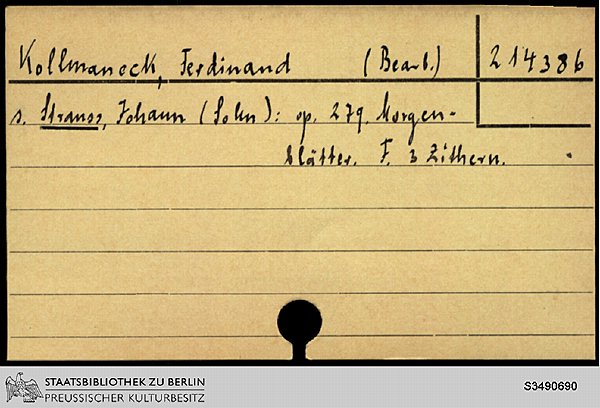 Kollmaneck, Ferdinand (Bearb.) 214386
s. Strauss, Johann (Sohn): op. 279. Morgen-
blätter. F. 3 Zithern.
STAATSBIBLIOTHEK ZU BERLIN
PREUSSISCHER KULTURBESITZ
S3490690